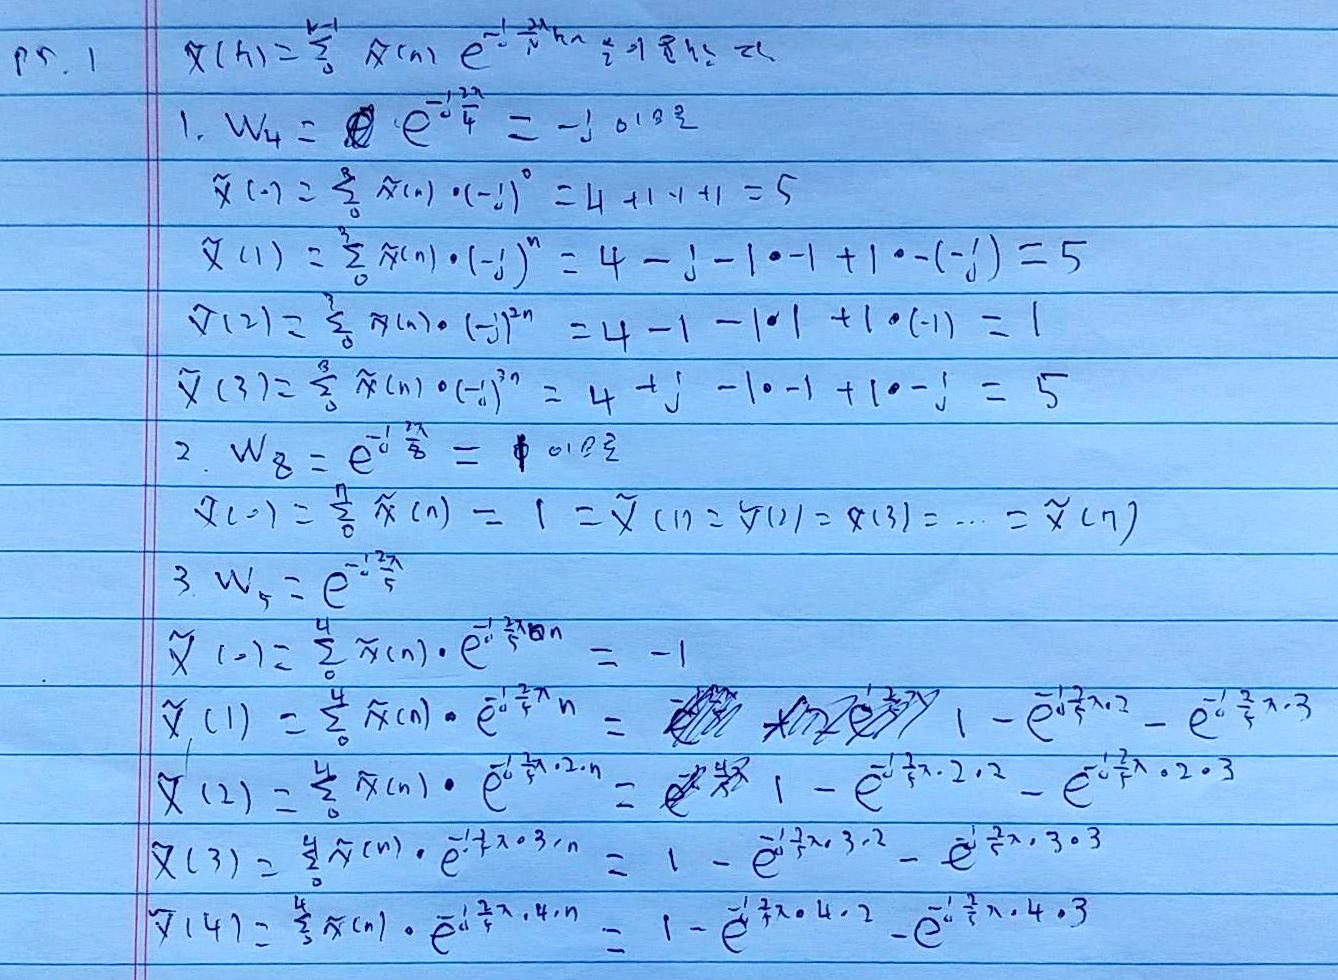 pr. 1 X̃(k) = Σ_0^{N-1} x̃(n) e^{-j 2π/N kn} 를 이용하는 과
1. W₄ = e^{-j 2π/4} = -j 이므로
x̃(0) = Σ_0^3 x̃(n) · (-j)^0 = 4 + 1 - 1 + 1 = 5
x̃(1) = Σ_0^3 x̃(n) · (-j)^n = 4 - j - 1 · -1 + 1 · -(-j) = 5
x̃(2) = Σ_0^3 x̃(n) · (-j)^{2n} = 4 - 1 - 1 · 1 + 1 · (-1) = 1
x̃(3) = Σ_0^3 x̃(n) · (-j)^{3n} = 4 + j - 1 · -1 + 1 · -j = 5
2. W₈ = e^{-j 2π/8} = 1 이므로
x̃(0) = Σ_0^7 x̃(n) = 1 = x̃(1) = x̃(2) = x̃(3) = ... = x̃(7)
3. W₅ = e^{-j 2π/5}
x̃(0) = Σ_0^4 x̃(n) · e^{-j 2π/5 · 0n} = -1
x̃(1) = Σ_0^4 x̃(n) · e^{-j 2/5 π n} = 1 - e^{-j 2/5 π · 2} - e^{-j 2/5 π · 3}
x̃(2) = Σ_0^4 x̃(n) · e^{-j 2/5 π · 2 · n} = 1 - e^{-j 2/5 π · 2 · 2} - e^{-j 2/5 π · 2 · 3}
x̃(3) = Σ_0^4 x̃(n) · e^{-j 2/5 π · 3 · n} = 1 - e^{-j 2/5 π · 3 · 2} - e^{-j 2/5 π · 3 · 3}
x̃(4) = Σ_0^4 x̃(n) · e^{-j 2/5 π · 4 · n} = 1 - e^{-j 2/5 π · 4 · 2} - e^{-j 2/5 π · 4 · 3}